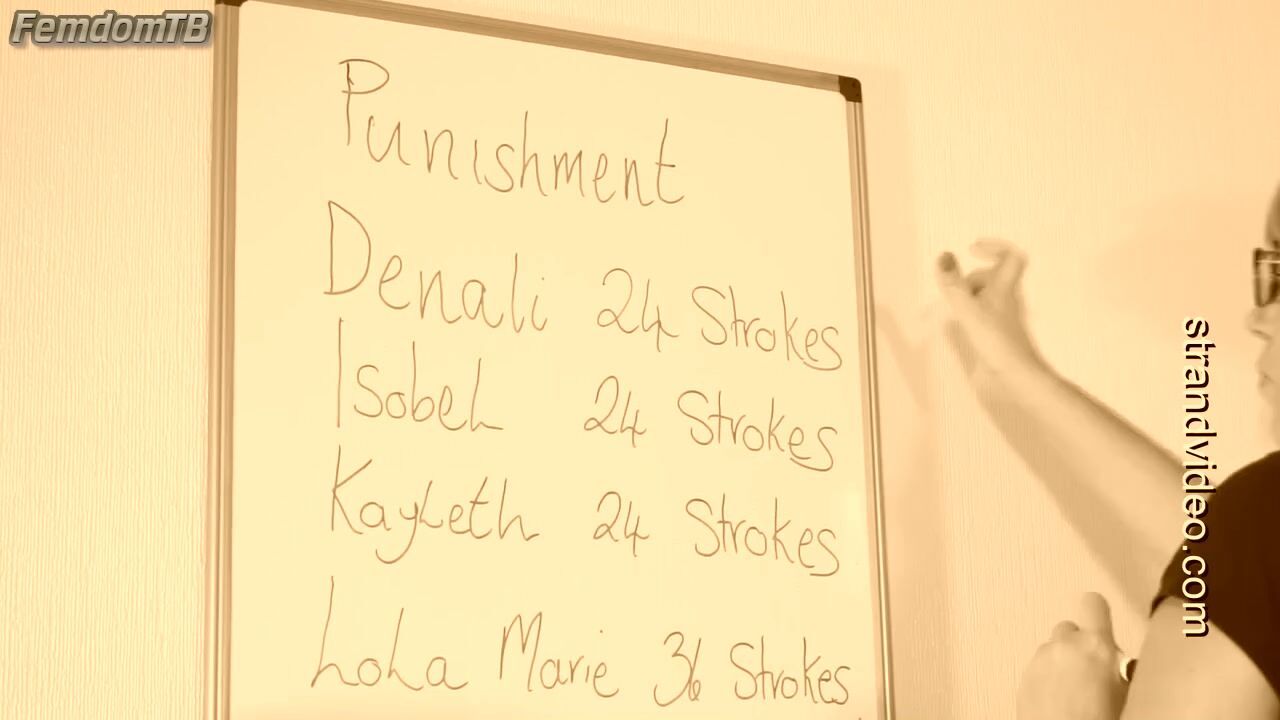 FemdomTB
Punishment
Denali 24 Strokes
Isobel 24 Strokes
Kayleth 24 Strokes
Lola Marie 36 Strokes
strandvideo.com